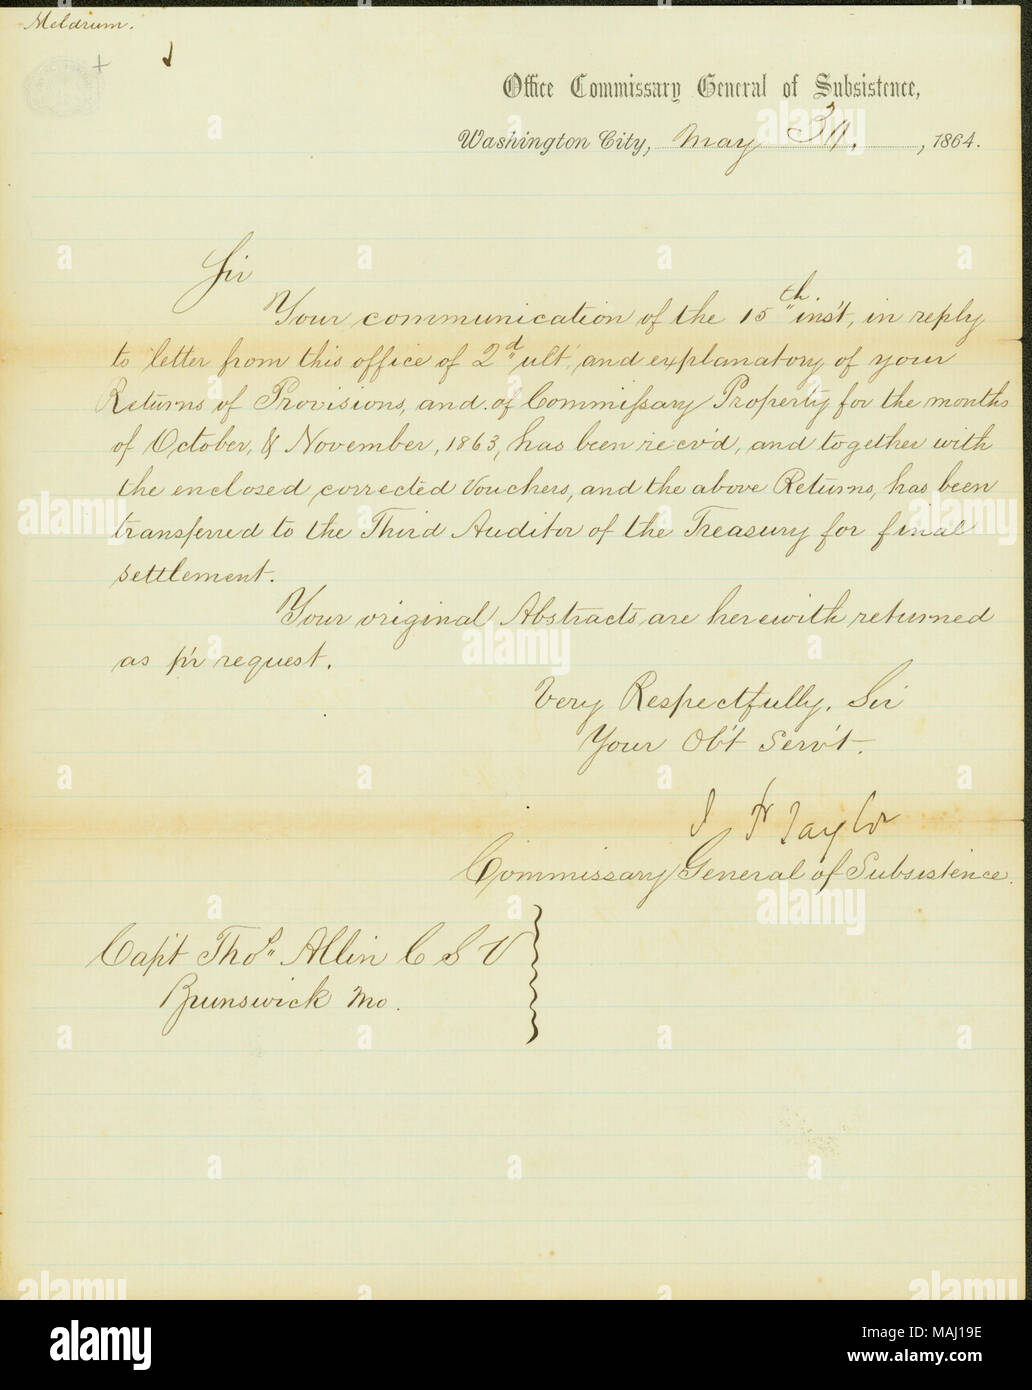 Meldrum.
Office Commissary General of Subsistence,
Washington City, May 31, 1864.
Sir
Your communication of the 15th. inst, in reply
to letter from this office of 2d ult, and explanatory of your
Returns of Provisions, and of Commissary Property for the months
of October, & November, 1863, has been recv'd, and together with
the enclosed corrected Vouchers, and the above Returns, has been
transferred to the Third Auditor of the Treasury for final
settlement.
Your original Abstracts are herewith returned
as pr request.
Very Respectfully, Sir
Your Ob't Serv't.
J P Taylor
Commissary General of Subsistence.
Capt Thos Allin C S V
Brunswick Mo.
alamy
Image ID: MAJ19E
www.alamy.com